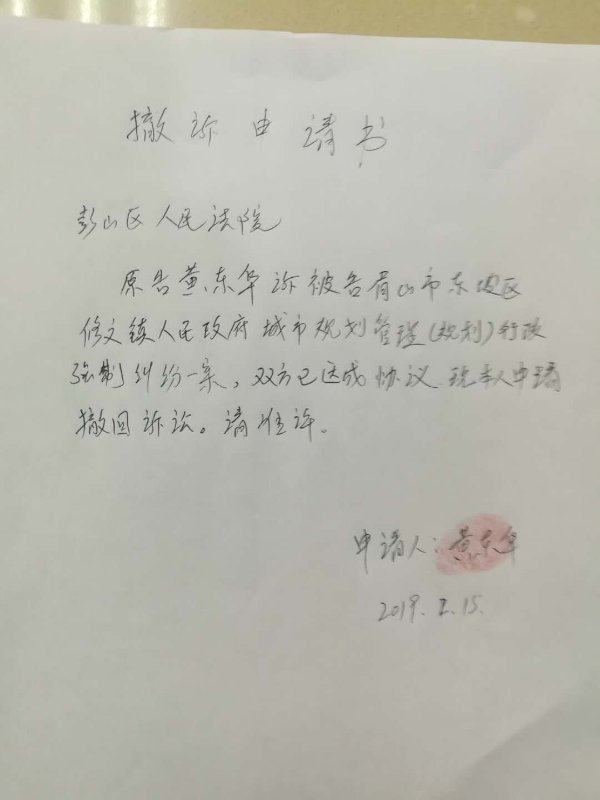 撤诉申请书
彭山区人民法院
原告黄东华诉被告眉山市东坡区
修文镇人民政府城市规划管理(规划)行政
强制纠纷一案，双方已达成协议.现本人申请
撤回诉讼。请准许。
申请人：黄东华
2019. .15.